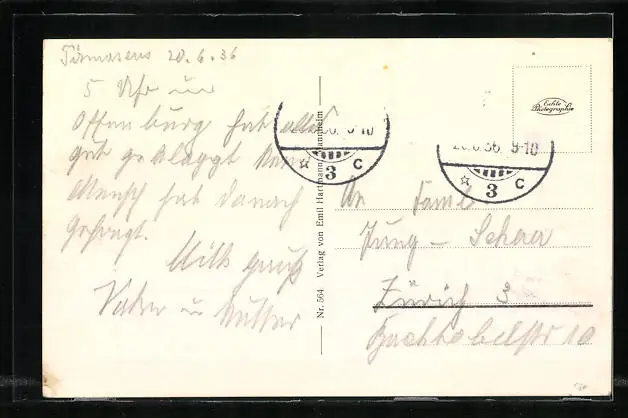 Pirmasens 20.6.36
5 Uhr in
Offenburg hat alles
gut geklappt kein
Mensch hat danach
gefragt.
Milk gruß
Vater u Mutter
Nr. 564 Verlag von Emil Hartmann, Mannheim
Echte
Photographie
36. 9-10
☆ 3 C
20.6.36. 9-10
☆ 3 C
An Famil
Jung - Schaer
Zürich 3
Bachtobelstr 10